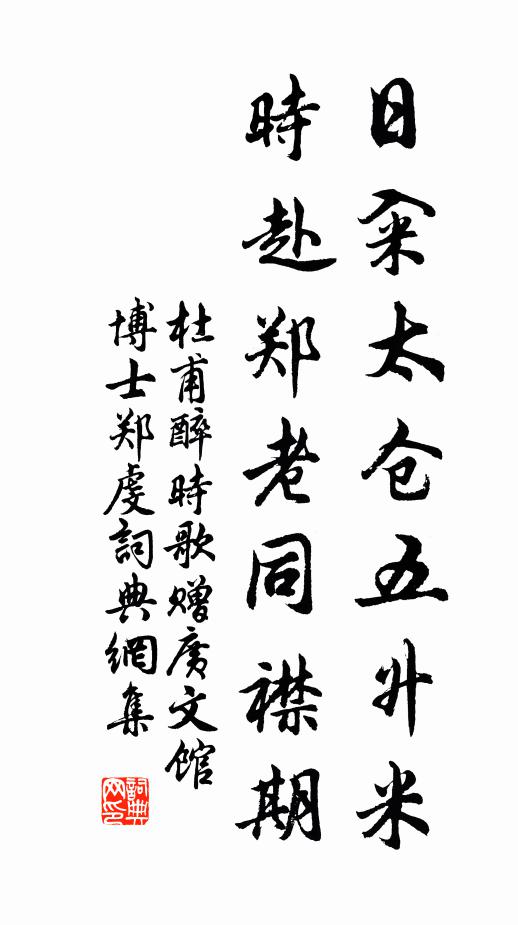 日籴太仓五升米
時赴郑老同襟期
杜甫醉時歌赠廣文馆
博士郑虔詞典網集
詞典网印